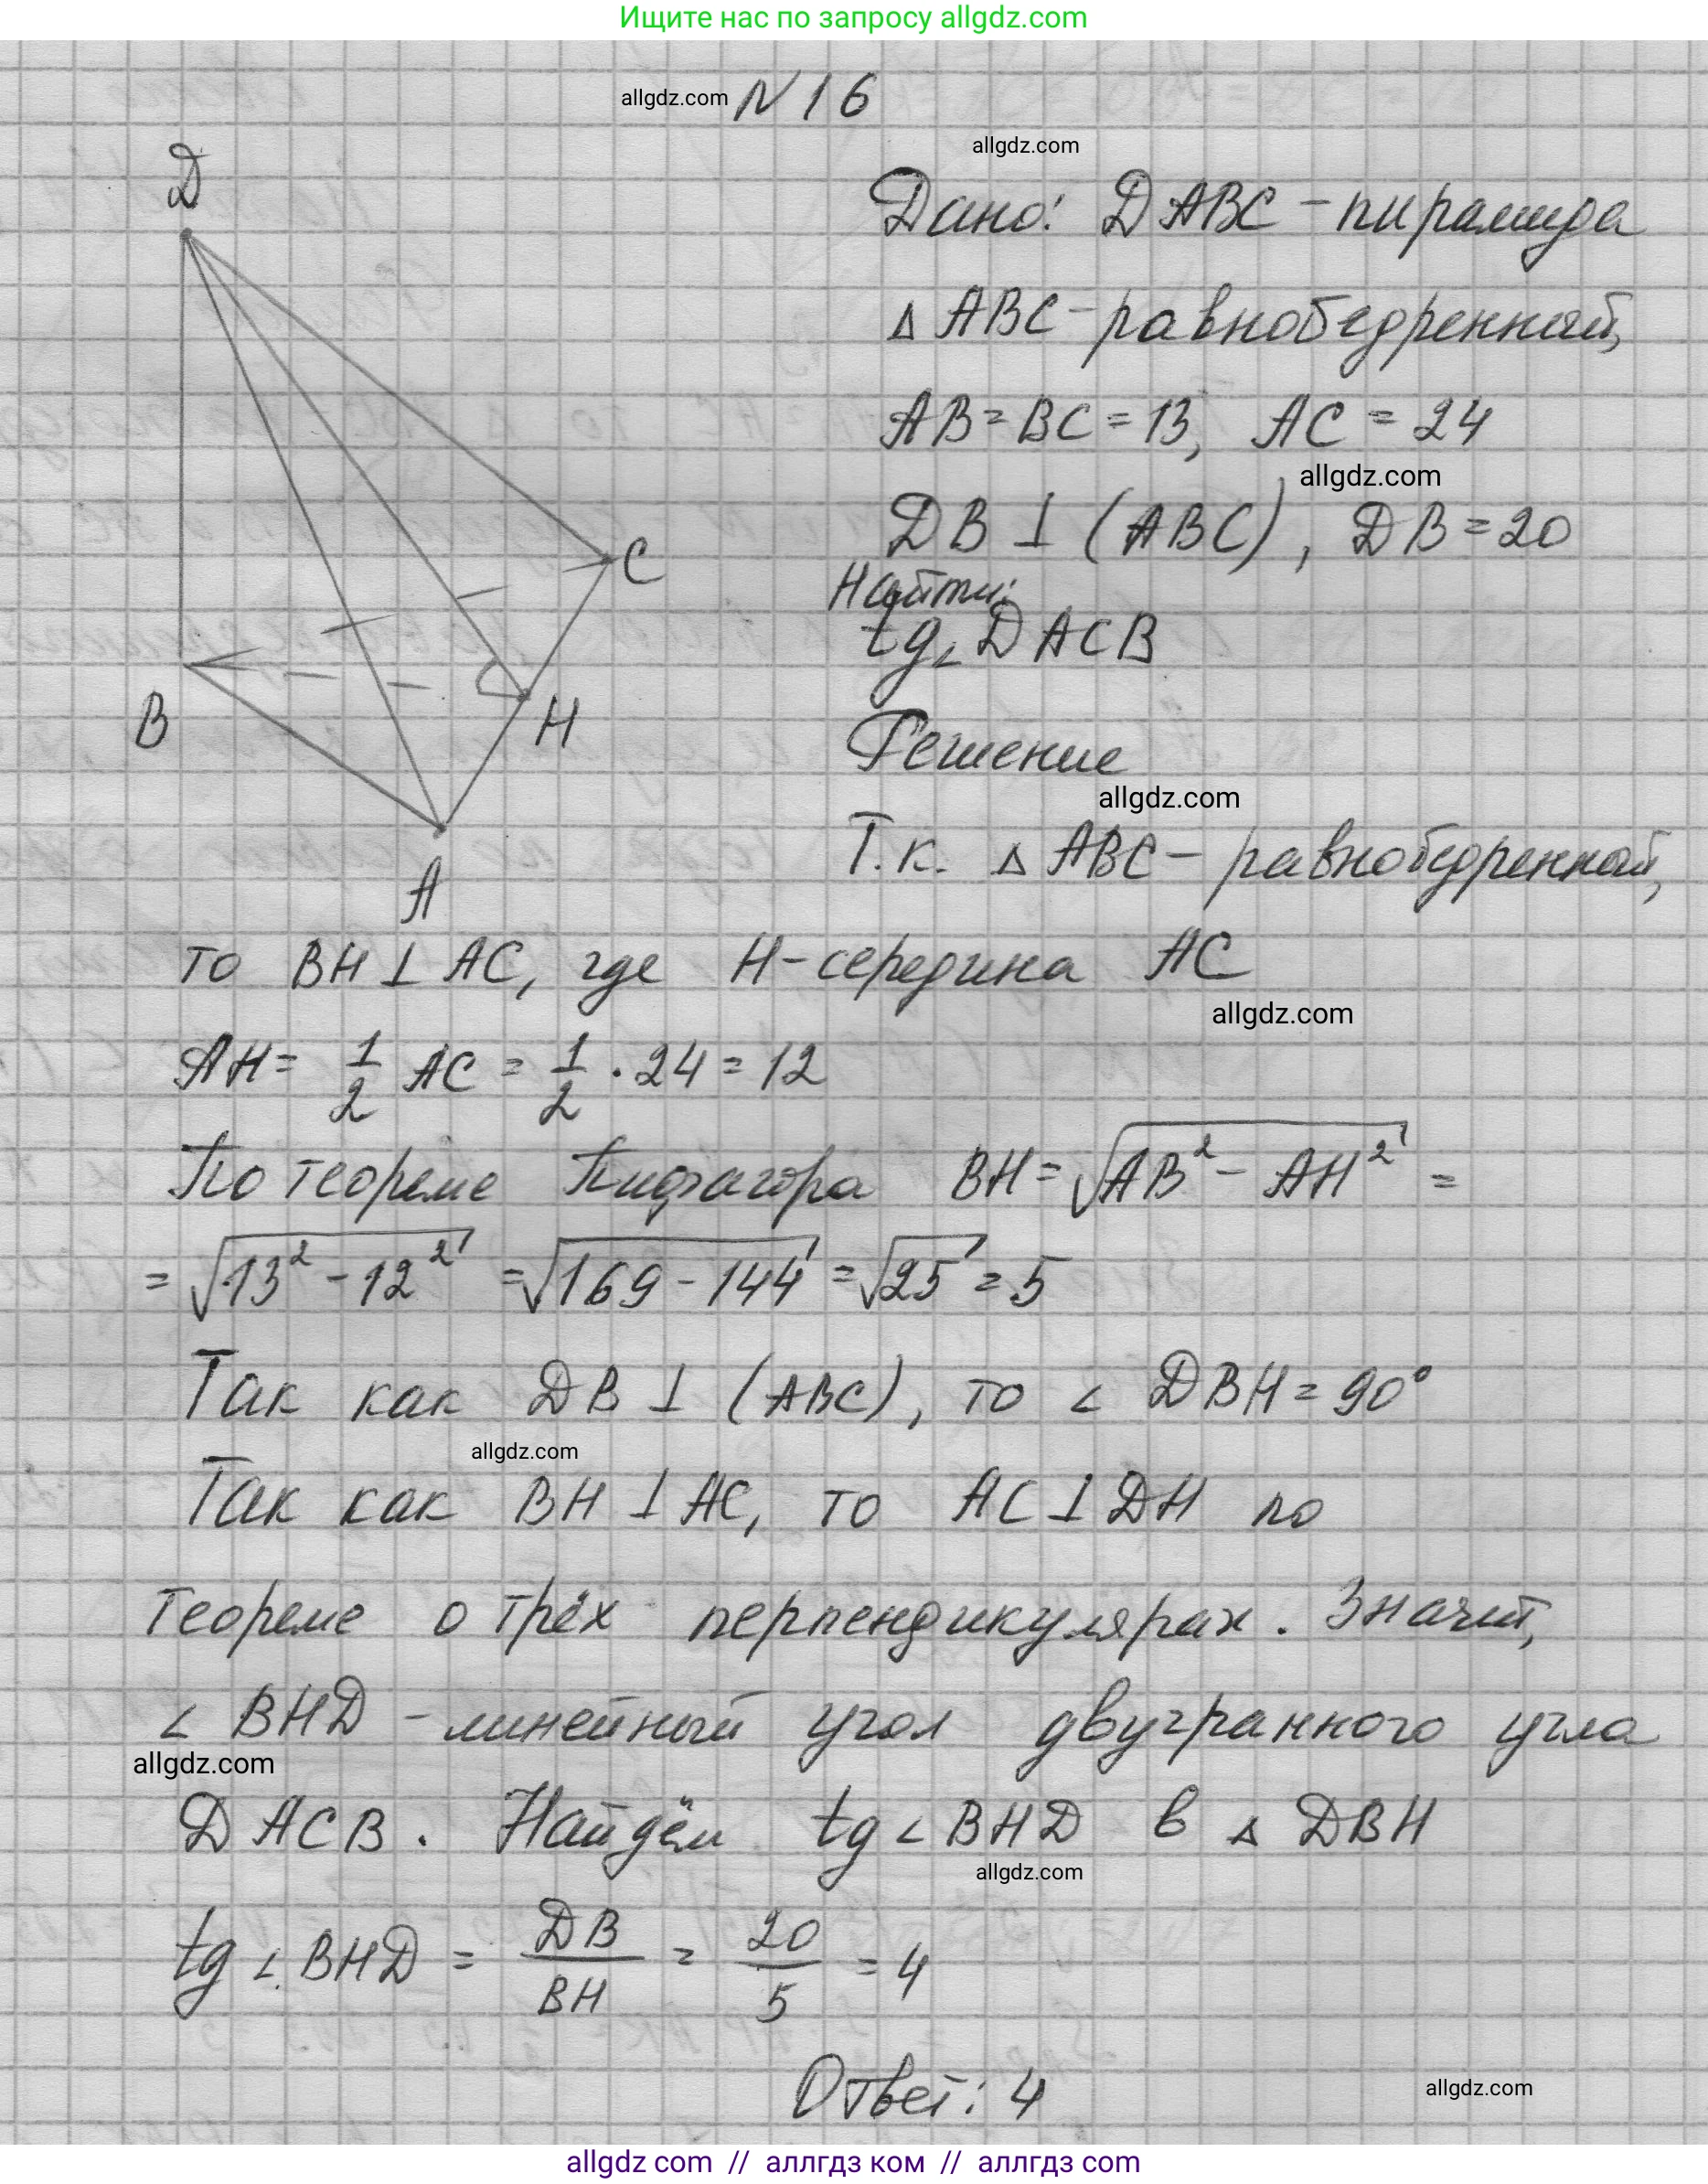 Ищите нас по запросу allgdz.com
allgdz.com N16
allgdz.com
D
Дано: DABC - пирамида
Δ ABC - равнобедренный,
AB = BC = 13, AC = 24
allgdz.com
DB ⊥ (ABC), DB = 20
C
Найти:
tg ∠ DACB
B
H
Решение
allgdz.com
Т.к. Δ ABC - равнобедренный,
A
то BH ⊥ AC, где H - середина AC
allgdz.com
AH = 1/2 AC = 1/2 · 24 = 12
По теореме Пифагора BH = √(AB² - AH²) =
= √(13² - 12²) = √(169 - 144) = √25 = 5
Так как DB ⊥ (ABC), то ∠ DBH = 90°
allgdz.com
Так как BH ⊥ AC, то AC ⊥ DH по
теореме о трёх перпендикулярах. Значит,
∠ BHD - линейный угол двугранного угла
allgdz.com
DACB. Найдём tg ∠ BHD в Δ DBH
allgdz.com
tg ∠ BHD = DB/BH = 20/5 = 4
Ответ: 4
allgdz.com
allgdz com // аллгдз ком // аллгдз com